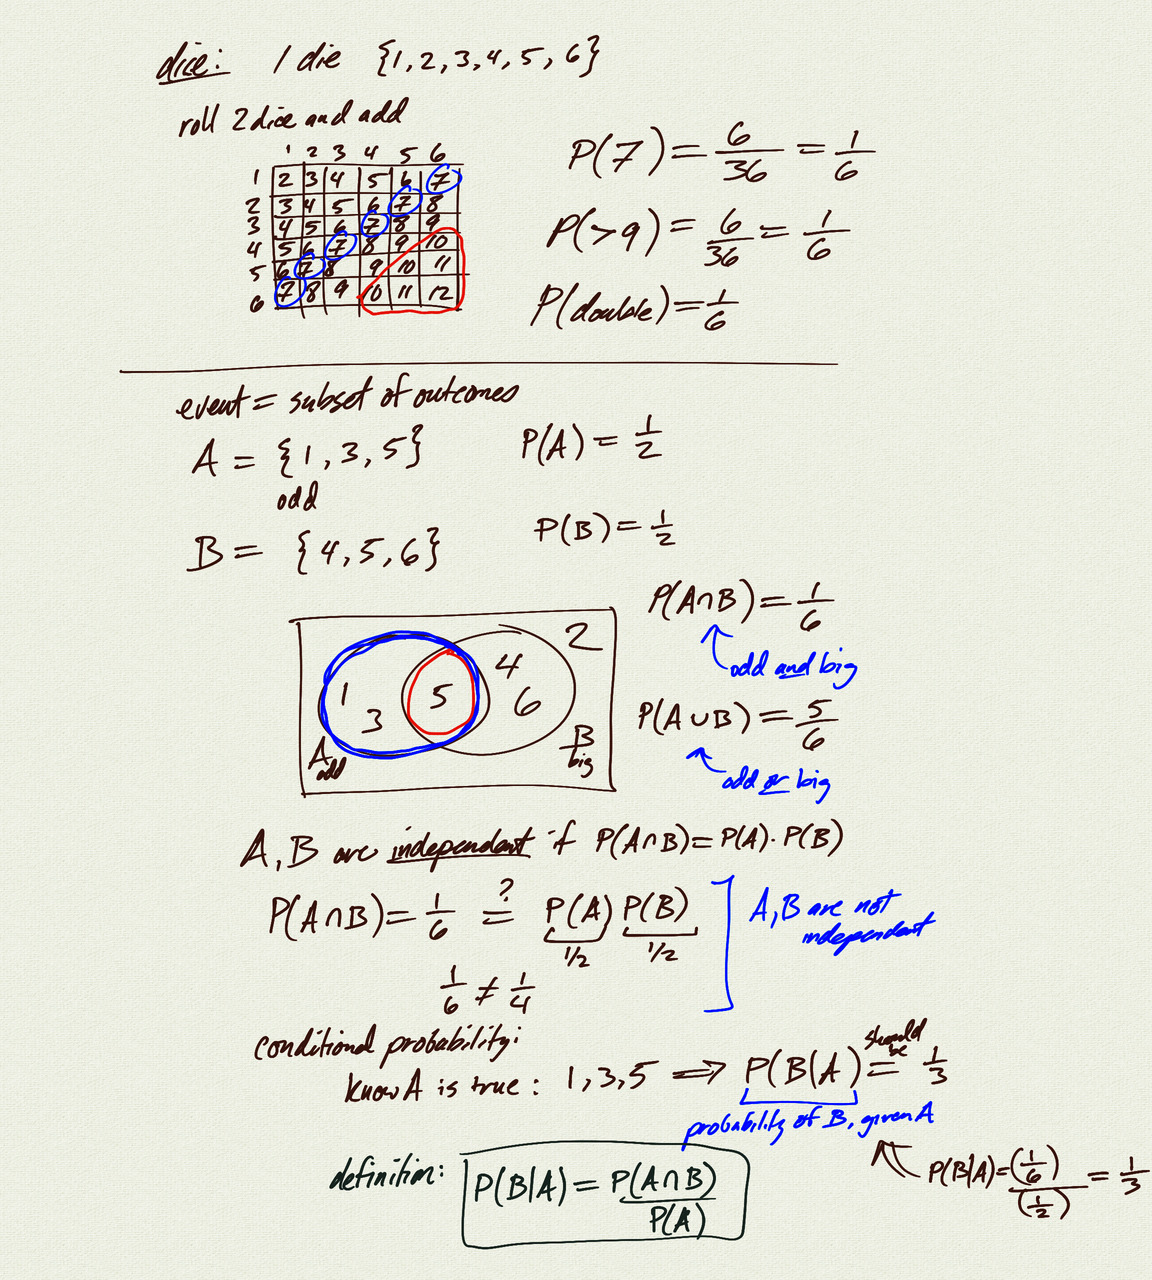 dice: 1 die {1, 2, 3, 4, 5, 6}
roll 2 dice and add
1 2 3 4 5 6
1 2 3 4 5 6 7
2 3 4 5 6 7 8
3 4 5 6 7 8 9
4 5 6 7 8 9 10
5 6 7 8 9 10 11
6 7 8 9 10 11 12
P(7) = 6/36 = 1/6
P(>9) = 6/36 = 1/6
P(double) = 1/6
event = subset of outcomes
A = {1, 3, 5} P(A) = 1/2
odd
B = {4, 5, 6} P(B) = 1/2
1 3 5 4 6 2
A odd
B big
P(A∩B) = 1/6
odd and big
P(A∪B) = 5/6
odd or big
A, B are independent if P(A∩B) = P(A)·P(B)
P(A∩B) = 1/6 =? P(A) P(B)
1/2 1/2
1/6 ≠ 1/4
A, B are not
independent
conditional probability:
know A is true: 1, 3, 5 ⟹ P(B|A) = 1/3
should be
probability of B, given A
definition: P(B|A) = P(A∩B)/P(A)
P(B|A) = (1/6)/(1/2) = 1/3